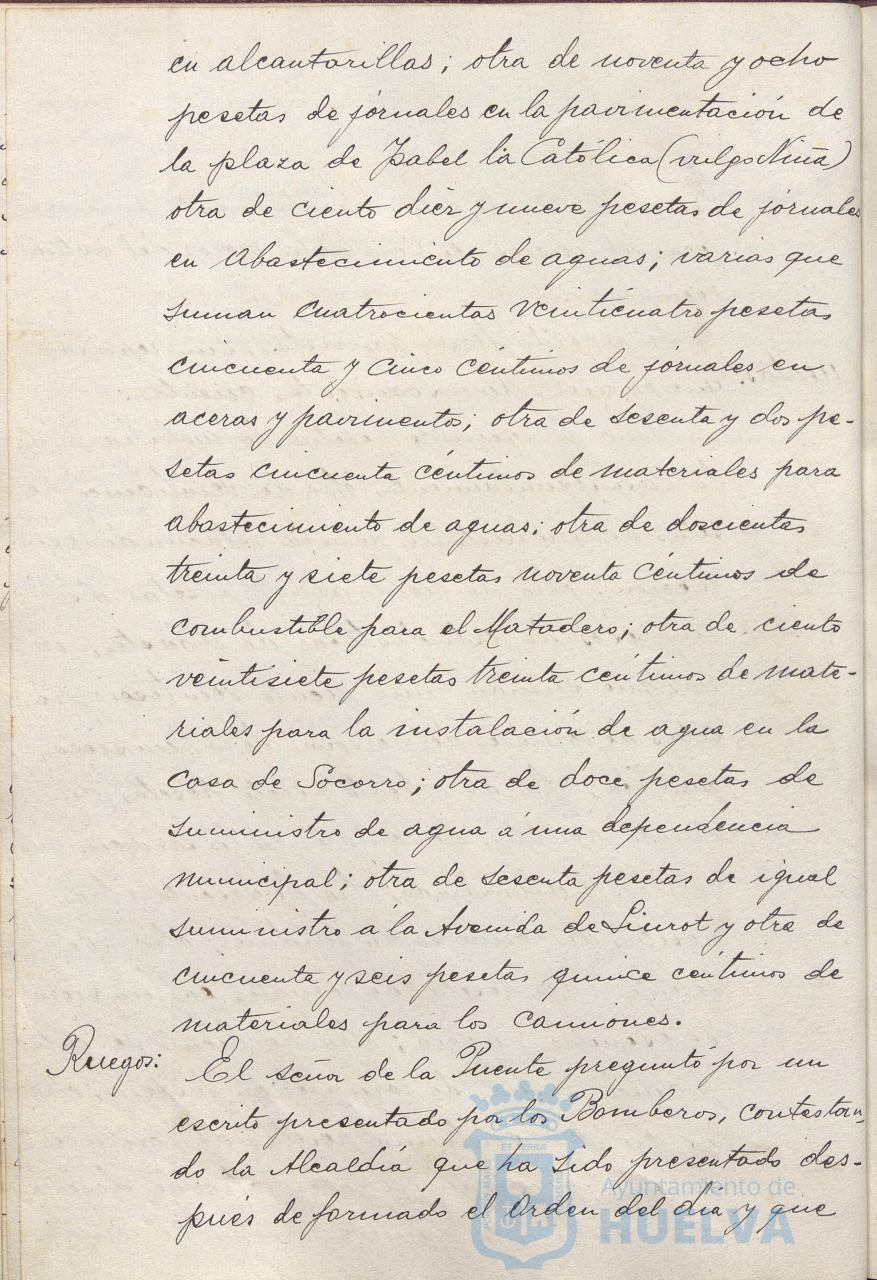 en alcantarillas; otra de noventa y ocho
pesetas de jórnales en la pavimentación de
la plaza de Isabel la Católica (vulgo Niña)
otra de ciento diéz y nueve pesetas de jornales
en abastecimiento de aguas; varias que
suman cuatrocientas veinticuatro pesetas
cincuenta y cinco céntimos de jórnales en
aceras y pavimentos; otra de sesenta y dos pe-
setas cincuenta céntimos de materiales para
abastecimiento de aguas; otra de doscientas
treinta y siete pesetas noventa céntimos de
combustible para el Matadero; otra de ciento
veintisiete pesetas treinta céntimos de mate-
riales para la instalación de agua en la
Casa de Socorro; otra de doce pesetas de
suministro de agua á una dependencia
municipal; otra de sesenta pesetas de igual
suministro á la Avenida de Siurot y otra de
cincuenta y seis pesetas quince céntimos de
materiales para los camiones.
Ruegos: El señor de la Puente preguntó por un
escrito presentado por los Bomberos, contestan-
do la Alcaldía que ha sido presentado des-
pués de formado el Orden del día y que
Ayuntamiento de
HUELVA